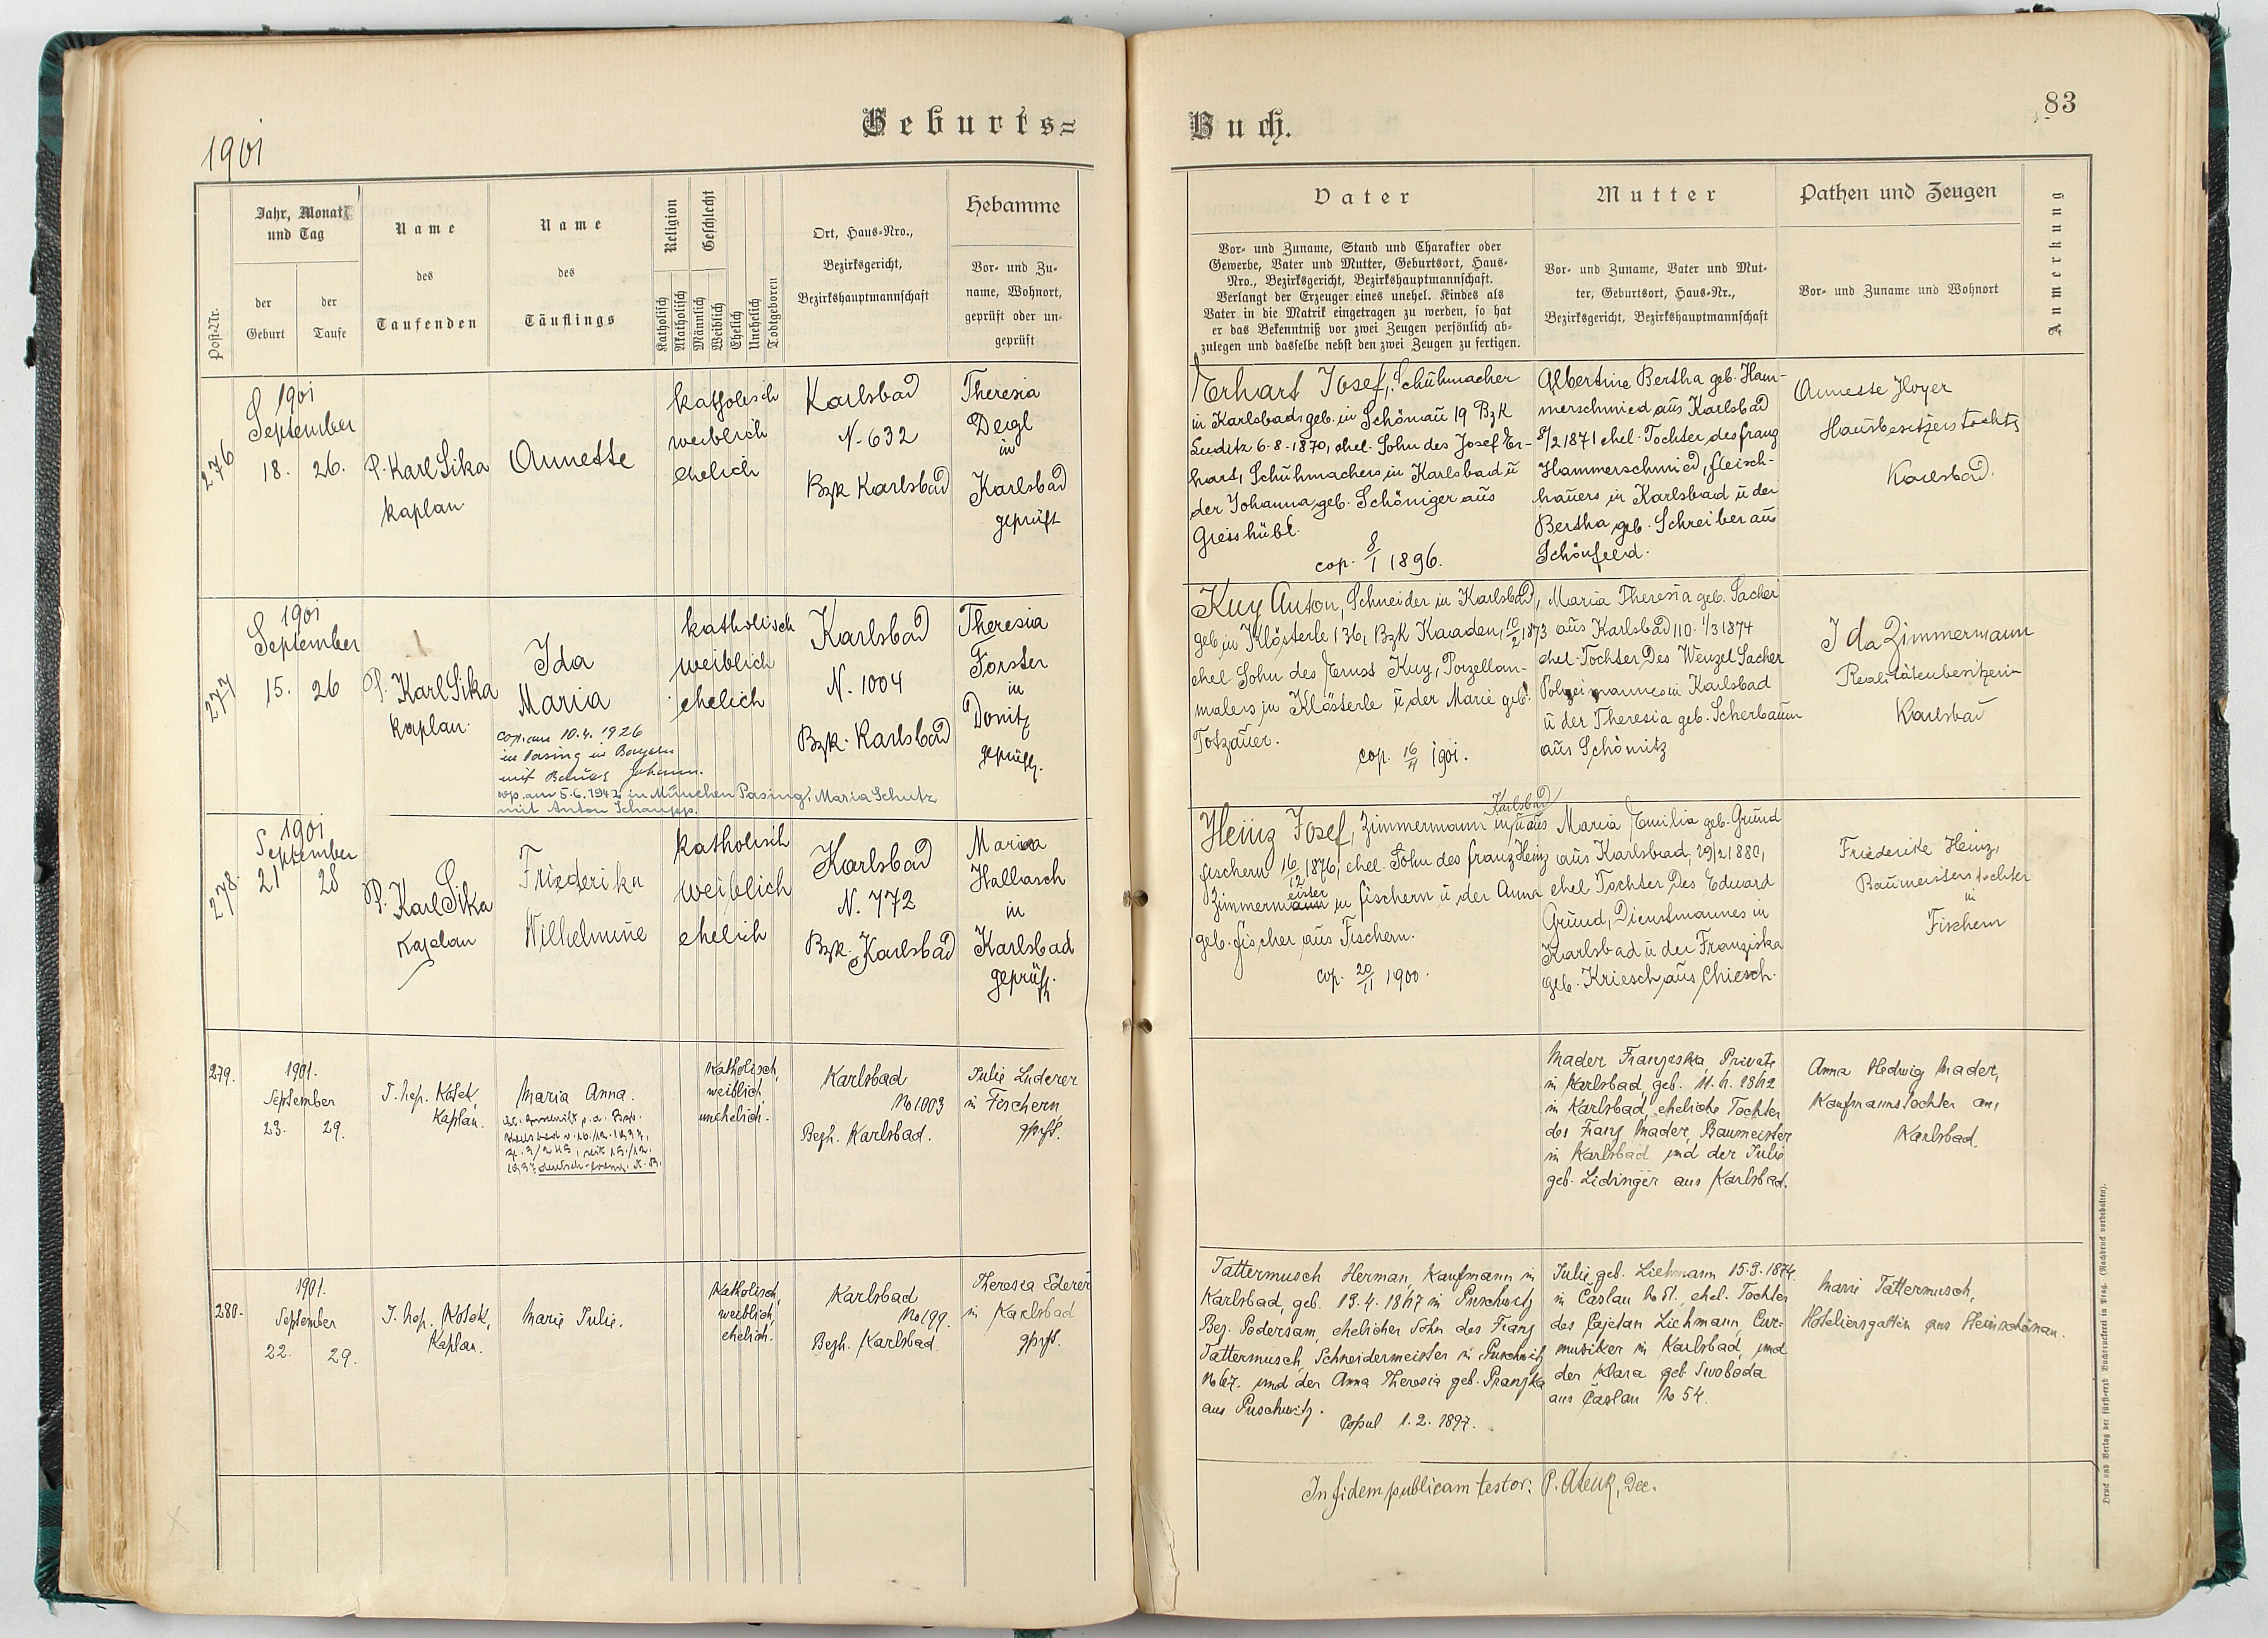 Geburts=
1901
Jahr, Monat
und Tag
der
Geburt
der
Taufe
Post-Nr.
Name
des
Taufenden
Name
des
Täuflings
Religion
Katholisch
Akatholisch
Geschlecht
Männlich
Weiblich
Ehelich
Unehelich
Todtgeboren
Ort, Haus-Nro.,
Bezirksgericht,
Bezirkshauptmannschaft
Hebamme
Vor- und Zu-
name, Wohnort,
geprüft oder un-
geprüft
276
1901
September
18. 26.
P. Karl Sika
kaplan
Annette
katholisch
weiblich
ehelich
Karlsbad
N. 632
Bzk Karlsbad
Theresia
Deigl
in
Karlsbad
geprüft
277
1901
September
15. 26
P. Karl Sika
kaplan.
Ida
Maria
cop. am 10.4. 1926
in Pasing in Bayern
mit Johann.
am 5.6.1942 in München Pasing, Maria Schutz
mit Anton Schaupp.
katholisch
weiblich
ehelich
Karlsbad
N. 1004
Bzk. Karlsbad
Theresia
Forster
in
Donitz
geprüft.
278.
1901
September
21 28
P. Karl Sika
Kaplan
Friederike
Wilhelmine
katholisch
weiblich
ehelich
Karlsbad
N. 772
Bzk. Karlsbad
Maria
Hallasch
in
Karlsbad
geprüft.
279.
1901.
September
23. 29.
J. Nep. Košek,
Kaplan.
Maria Anna.
deutsch-evang. A. B.
Katholisch,
weiblich,
unehelich.
Karlsbad
No 1003
Bezh. Karlsbad.
Julie Luderer
in Fischern
gprft.
280.
1901.
September
22. 29.
J. Nep. Košek,
Kaplan.
Marie Julie.
Katholisch,
weiblich,
ehelich.
Karlsbad
No 199.
Bezh. Karlsbad.
Theresia Ederer
in Karlsbad
gprft.
Buch.
83
Vater
Vor- und Zuname, Stand und Charakter oder
Gewerbe, Vater und Mutter, Geburtsort, Haus-
Nro., Bezirksgericht, Bezirkshauptmannschaft.
Verlangt der Erzeuger eines unehel. Kindes als
Vater in die Matrik eingetragen zu werden, so hat
er das Bekenntniß vor zwei Zeugen persönlich ab-
zulegen und dasselbe nebst den zwei Zeugen zu fertigen.
Mutter
Vor- und Zuname, Vater und Mut-
ter, Geburtsort, Haus-Nr.,
Bezirksgericht, Bezirkshauptmannschaft
Pathen und Zeugen
Vor- und Zuname und Wohnort
Anmerkung
Erhart Josef, Schuhmacher
in Karlsbad, geb. in Schönau 19 Bzk
Luditz 6.8.1870, ehel. Sohn des Josef Er-
hart, Schuhmachers in Karlsbad u
der Johanna, geb. Schöniger aus
Giesshübl.
cop. 8/1 1896.
Albertine Bertha geb. Ham-
merschmied aus Karlsbad
8/2 1871 ehel. Tochter des Franz
Hammerschmied, Fleisch-
hauers in Karlsbad u der
Bertha, geb. Schreiber aus
Schönfeld.
Annette Hoyer
Hausbesitzerstochter
Karlsbad.
Kuy Anton, Schneider in Karlsbad,
geb. in Klösterle 136, Bzk Kaaden, 10/2 1873
ehel. Sohn des Ernst Kuy, Porzellan-
malers in Klösterle u der Marie geb.
Totzauer.
cop. 16/4 1901.
Maria Theresia geb. Sacher
aus Karlsbad 110. 1/3 1874
ehel. Tochter des Wenzel Sacher
Polizeimannes in Karlsbad
u der Theresia geb. Scherbaum
aus Schömitz
Ida Zimmermann
Realitätenbesitzerin
Karlsbad
Karlsbad
Heinz Josef, Zimmermann in u aus
Fischern 16/12 1876, ehel. Sohn des Franz Heinz
eister
Zimmermann in Fischern u der Anna
geb. Fischer aus Fischern.
cop. 20/11 1900.
Maria Emilia geb. Grund
aus Karlsbad, 29/2 1880,
ehel Tochter des Eduard
Grund, Dienstmannes in
Karlsbad u der Franziska
geb. Kriesch aus Chiesch.
Friederike Heinz,
Baumeisterstochter
in
Fischern
Mader Franziska, Private
in Karlsbad, geb. 11. 4. 1862
in Karlsbad, eheliche Tochter
des Franz Mader, Baumeister
in Karlsbad und der Julie
geb. Lidinger aus Karlsbad.
Anna Hedwig Mader,
Kaufmannstochter aus
Karlsbad.
Tattermusch Herman, Kaufmann in
Karlsbad, geb. 19. 4. 1867 in Puschwitz
Bez. Podersam, ehelicher Sohn des Franz
Tattermusch, Schneidermeister in Puschwitz
No 67. und der Anna Theresia geb. Pranzka
aus Puschwitz.
Copul 1. 2. 1897.
Julie geb. Liehmann 15.9.1874.
in Časlau No 51., ehel. Tochter
des Cajetan Liehmann, Cur-
musiker in Karlsbad, und
der Klara geb Swoboda
aus Časlau No 54.
Marie Tattermusch,
Hoteliersgattin aus Steinschönau.
In fidem publicam testor: P. Dec.
Druck und Verlag der fürst-erzb Buchdruckerei in Prag. (Nachdruck vorbehalten).